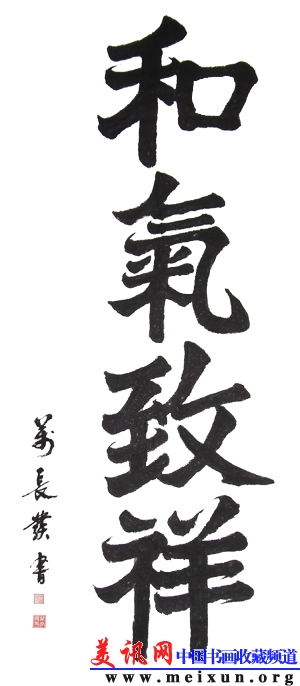 和氣致祥
萬長發書
美讯网 中国书画收藏频道
www.meixun.org